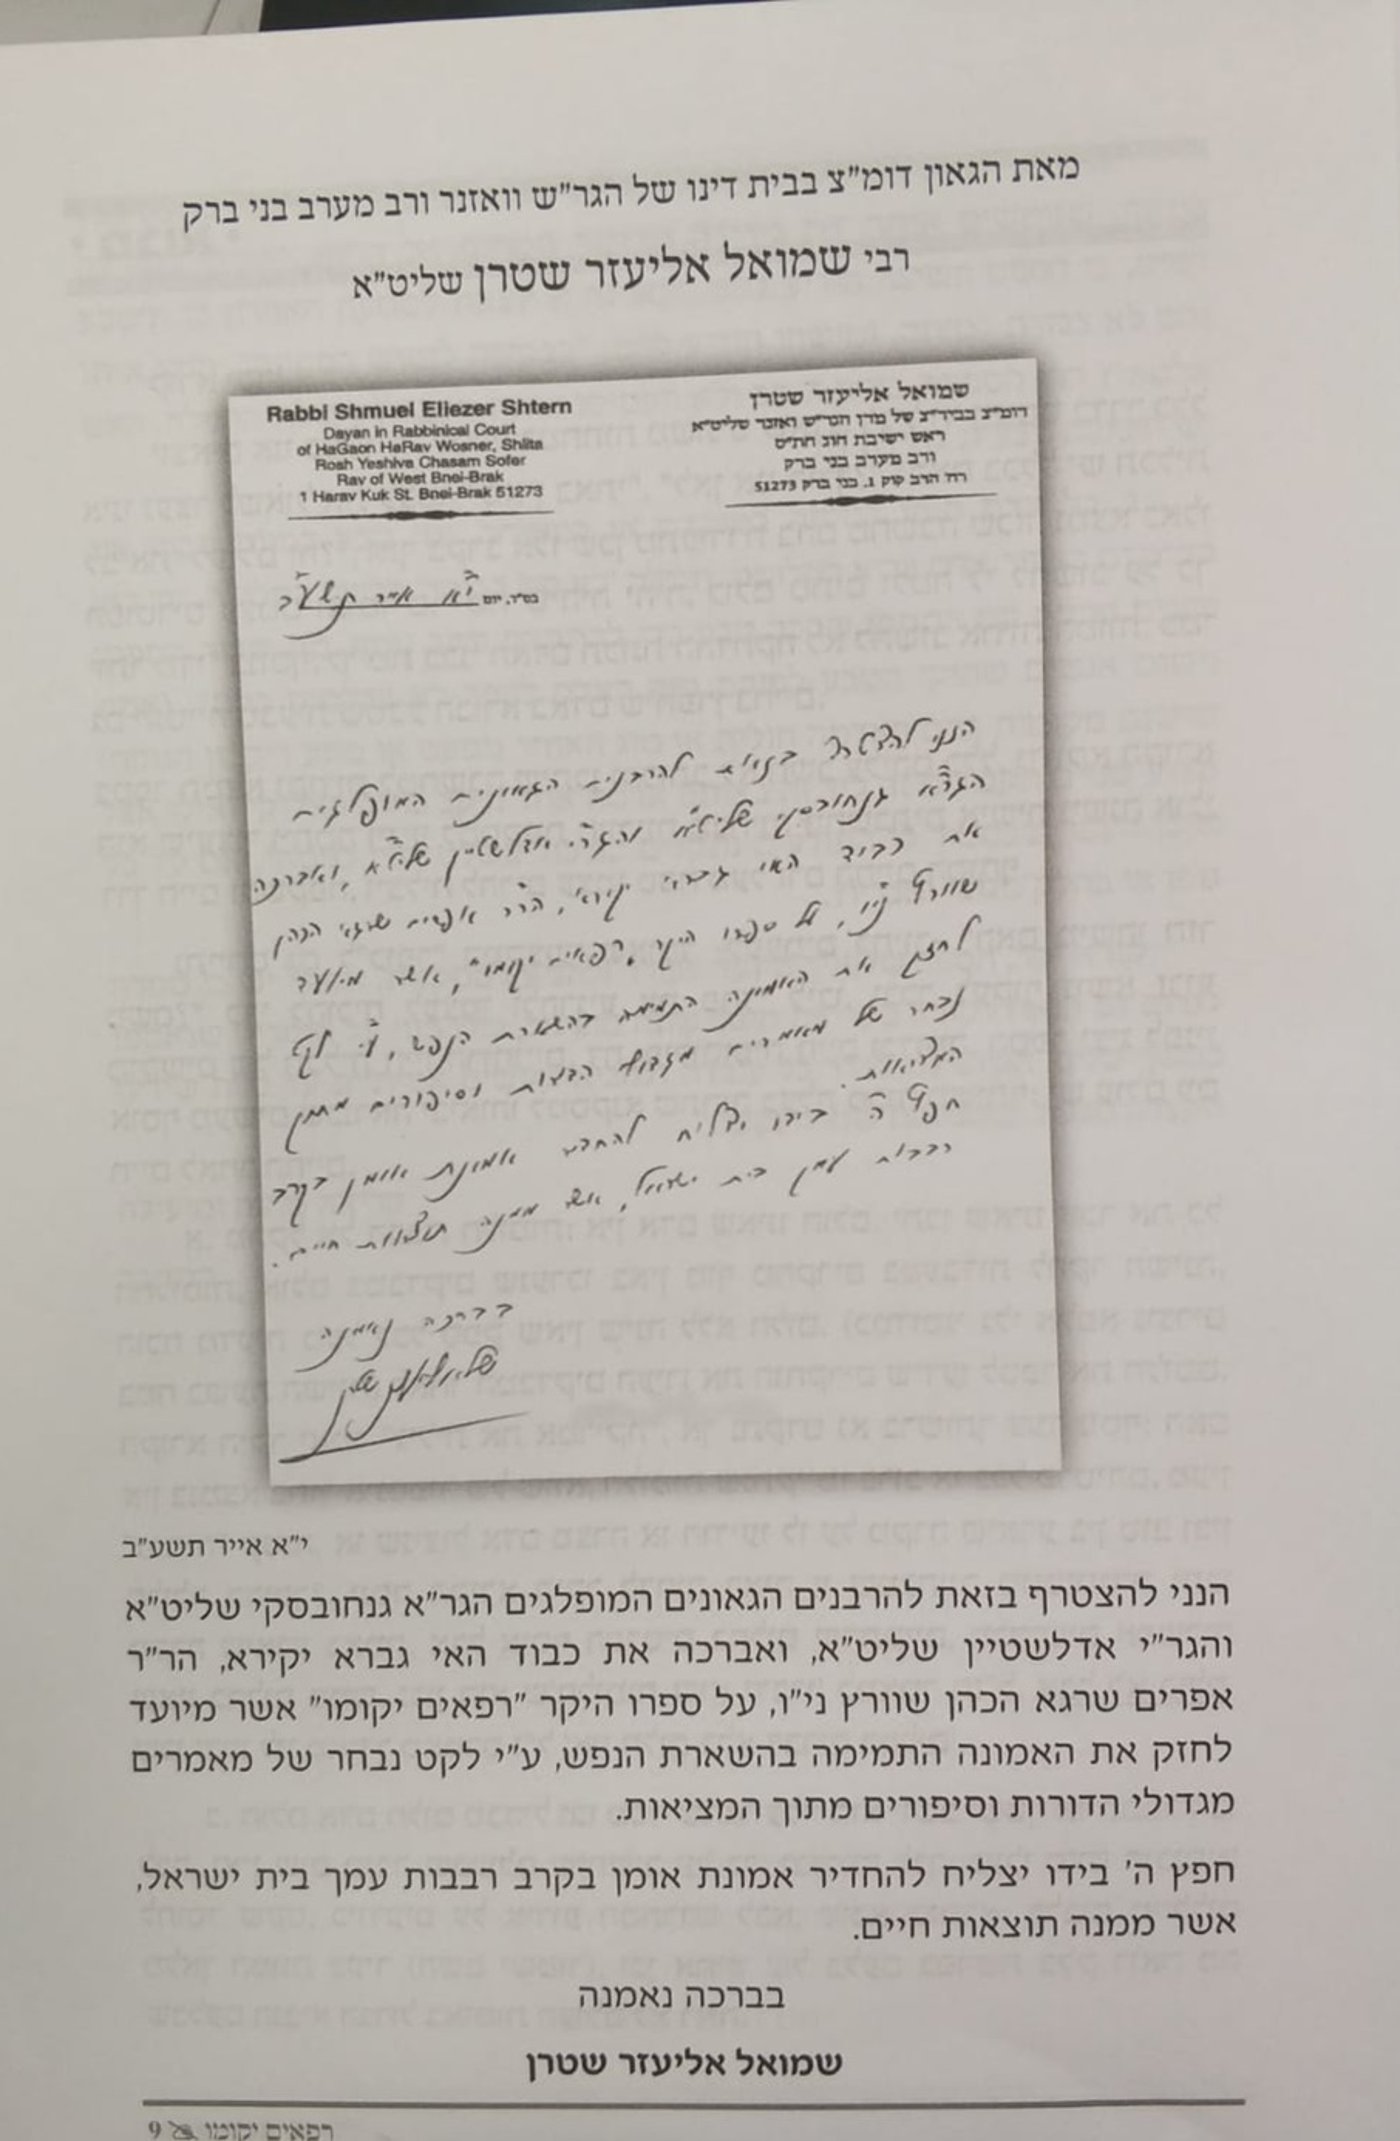 מאת הגאון דומ"צ בבית דינו של הגר"ש וואזנר ורב מערב בני ברק
רבי שמואל אליעזר שטרן שליט"א
שמואל אליעזר שטרן
דומ"צ בביד"צ של מרן הגר"ש ואזנר שליט"א
ראש ישיבת חוג חת"ס
ורב מערב בני ברק
רח' הרב קוק 1, בני ברק 51273
Rabbi Shmuel Eliezer Shtern
Dayan in Rabbinical Court
of HaGaon HaRav Wosner, Shlita
Rosh Yeshiva Chasam Sofer
Rav of West Bnei-Brak
1 Harav Kuk St. Bnei-Brak 51273
בס"ד, יום י"א אייר תשע"ב
הנני להצטרף בזאת להרבנים הגאונים המופלגים
הגר"א גנחובסקי שליט"א והגר"י אדלשטיין שליט"א, ואברכה
את כבוד האי גברא יקירא, הר"ר אפרים שרגא הכהן
שוורץ ני"ו, על ספרו היקר "רפאים יקומו", אשר מיועד
לחזק את האמונה התמימה בהשארת הנפש, ע"י לקט
נבחר של מאמרים מגדולי הדורות וסיפורים מתוך
המציאות.
חפץ ה' בידו יצליח להחדיר אמונת אומן בקרב
רבבות עמך בית ישראל, אשר ממנה תוצאות חיים.
בברכה נאמנה
י"א אייר תשע"ב
הנני להצטרף בזאת להרבנים הגאונים המופלגים הגר"א גנחובסקי שליט"א
והגר"י אדלשטיין שליט"א, ואברכה את כבוד האי גברא יקירא, הר"ר
אפרים שרגא הכהן שוורץ ני"ו, על ספרו היקר "רפאים יקומו" אשר מיועד
לחזק את האמונה התמימה בהשארת הנפש, ע"י לקט נבחר של מאמרים
מגדולי הדורות וסיפורים מתוך המציאות.
חפץ ה' בידו יצליח להחדיר אמונת אומן בקרב רבבות עמך בית ישראל,
אשר ממנה תוצאות חיים.
בברכה נאמנה
שמואל אליעזר שטרן
רפאים יקומו 9